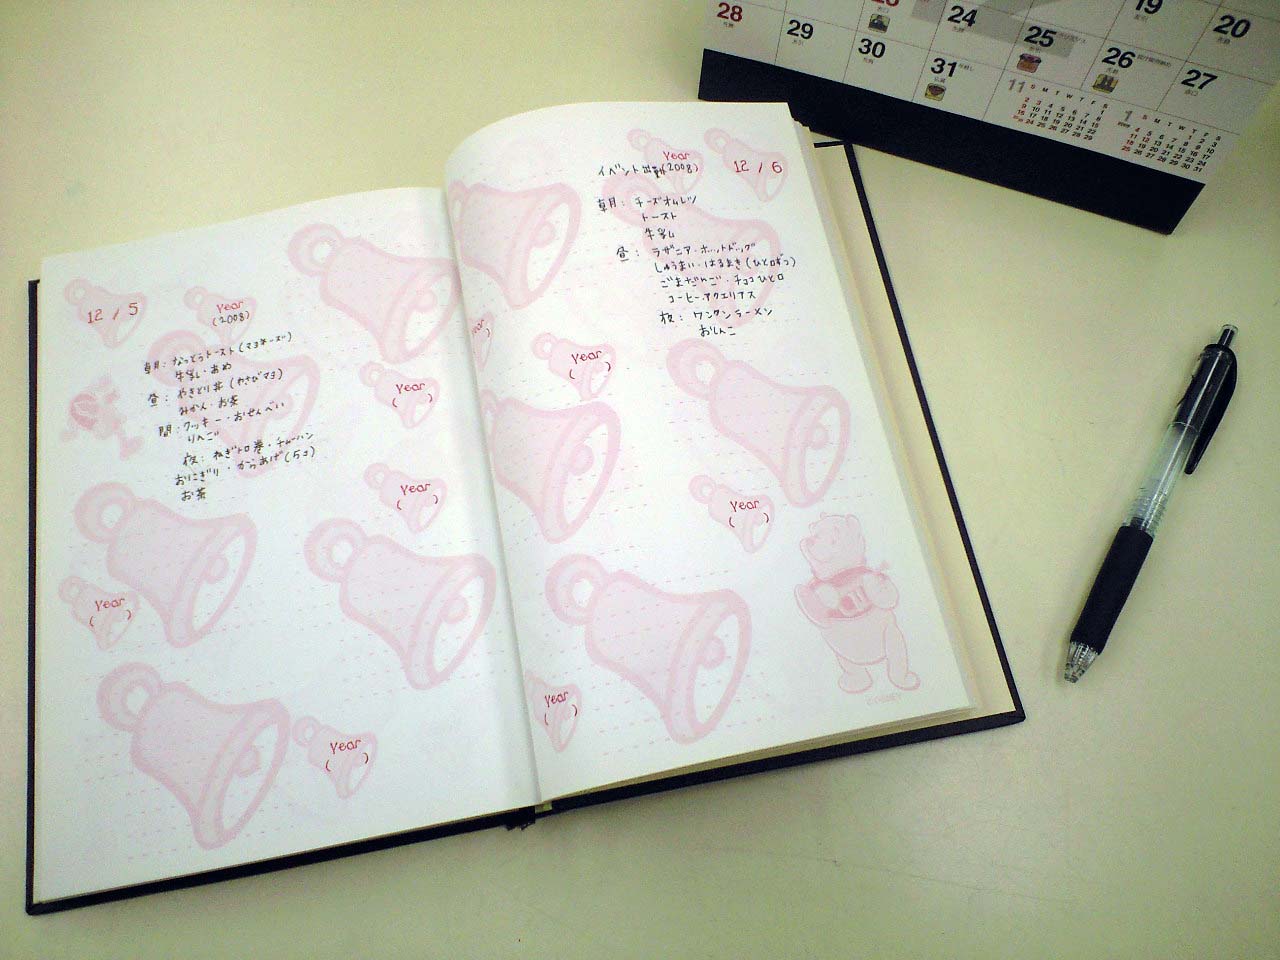 12 / 5
Year
(2008)
朝:なっとうトースト(マヨチーズ)
牛乳・あめ
昼:やきとり丼(わさびマヨ)
みかん・お茶
間:クッキー・おせんべい
りんご
夜:ねぎトロ巻・チャーハン
おにぎり・からあげ(5コ)
お茶
Year
( )
Year
( )
Year
( )
Year
( )
Year
イベント出勤(2008)
12 / 6
朝:チーズオムレツ
トースト
牛乳
昼:ラザニア・ホットドッグ
しゅうまい・はるまき(ひと口ずつ)
ごまだんご・チョコひと口
コーヒー・アクエリアス
夜:ワンタンラーメン
おしんこ
Year
( )
Year
( )
Year
( )
19
20
24
25
26
27
28
29
30
31
11
S M T W T F S
1
S M T W T F S